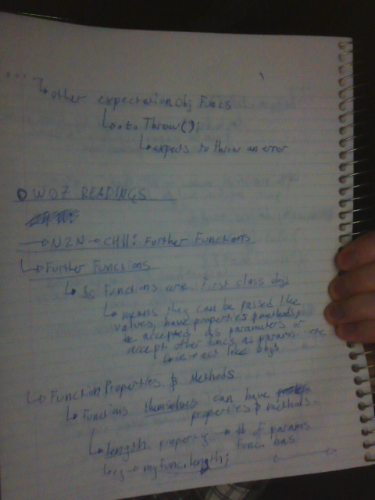 ... ↳ other expectation obj funcs
↳ .toThrow();
↳ expects to throw an error
W07 READINGS
→ N2N → CH11: Further Functions
↳ Further Functions
↳ JS Functions are first class obj
↳ means they can be passed like
values, have properties & methods,
accepted as parameters or
accept other funcs as params
↳ Function Properties & Methods
↳ Functions themselves can have
properties & methods.
↳ length property → # of params
func has
↳ eg → myFunc.length;